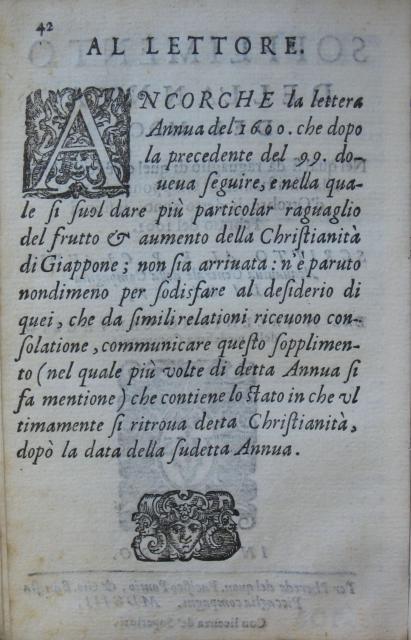 42
AL LETTORE.
ANCORCHE la lettera
Annua del 1600. che dopo
la precedente del 99. do-
ueua ſeguire, e nella qua-
le ſi ſuol dare più particolar raguaglio
del frutto & aumento della Chriſtianità
di Giappone; non ſia arriuata: n'è paruto
nondimeno per ſodisfare al deſiderio di
quei, che da ſimili relationi riceuono con-
ſolatione, communicare queſto ſopplimen-
to (nel quale più volte di detta Annua ſi
fa mentione) che contiene lo ſtato in che vl
timamente ſi ritroua detta Chriſtianità,
dopò la data della ſudetta Annua.